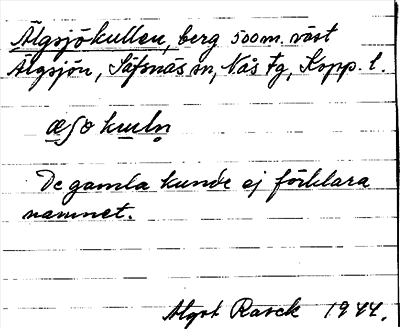 Älgsjökullen, berg 500 m. väst
Älgsjön, Säfsnäs sn, Nås tg, Kopp. l.
æʃo kuuln
De gamla kunde ej förklara
namnet.
Algot Rasck 1944.